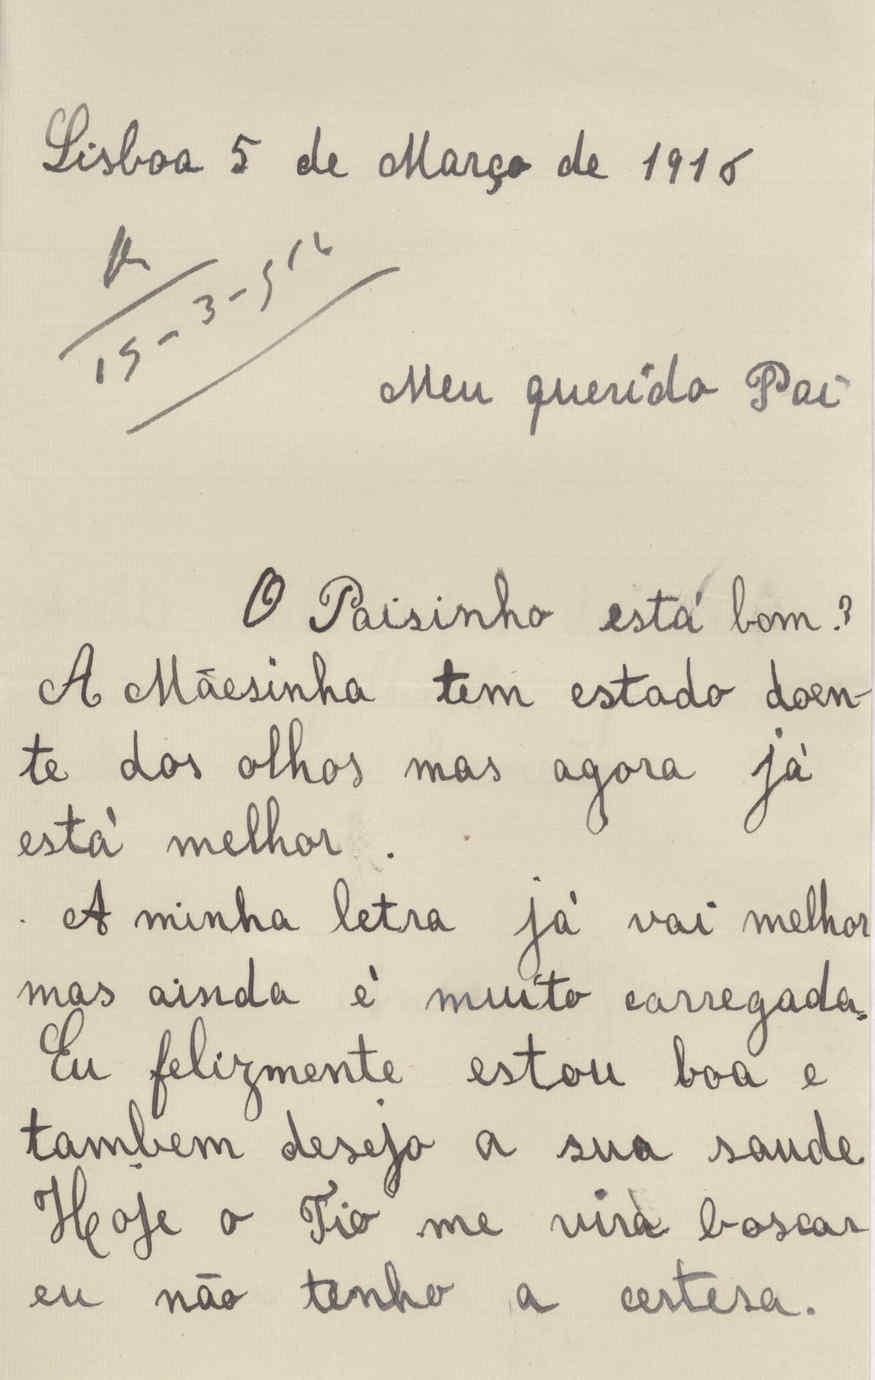 Lisboa 5 de Março de 1916
R
15-3-916
Meu querido Pai
O Paisinho está bom?
A Mãesinha tem estado doen-
te dos olhos mas agora já
está melhor.
A minha letra já vai melhor
mas ainda é muito carregada.
Eu felizmente estou boa e
tambem desejo a sua saude
Hoje o Tio me virá boscar
eu não tenho a certesa.